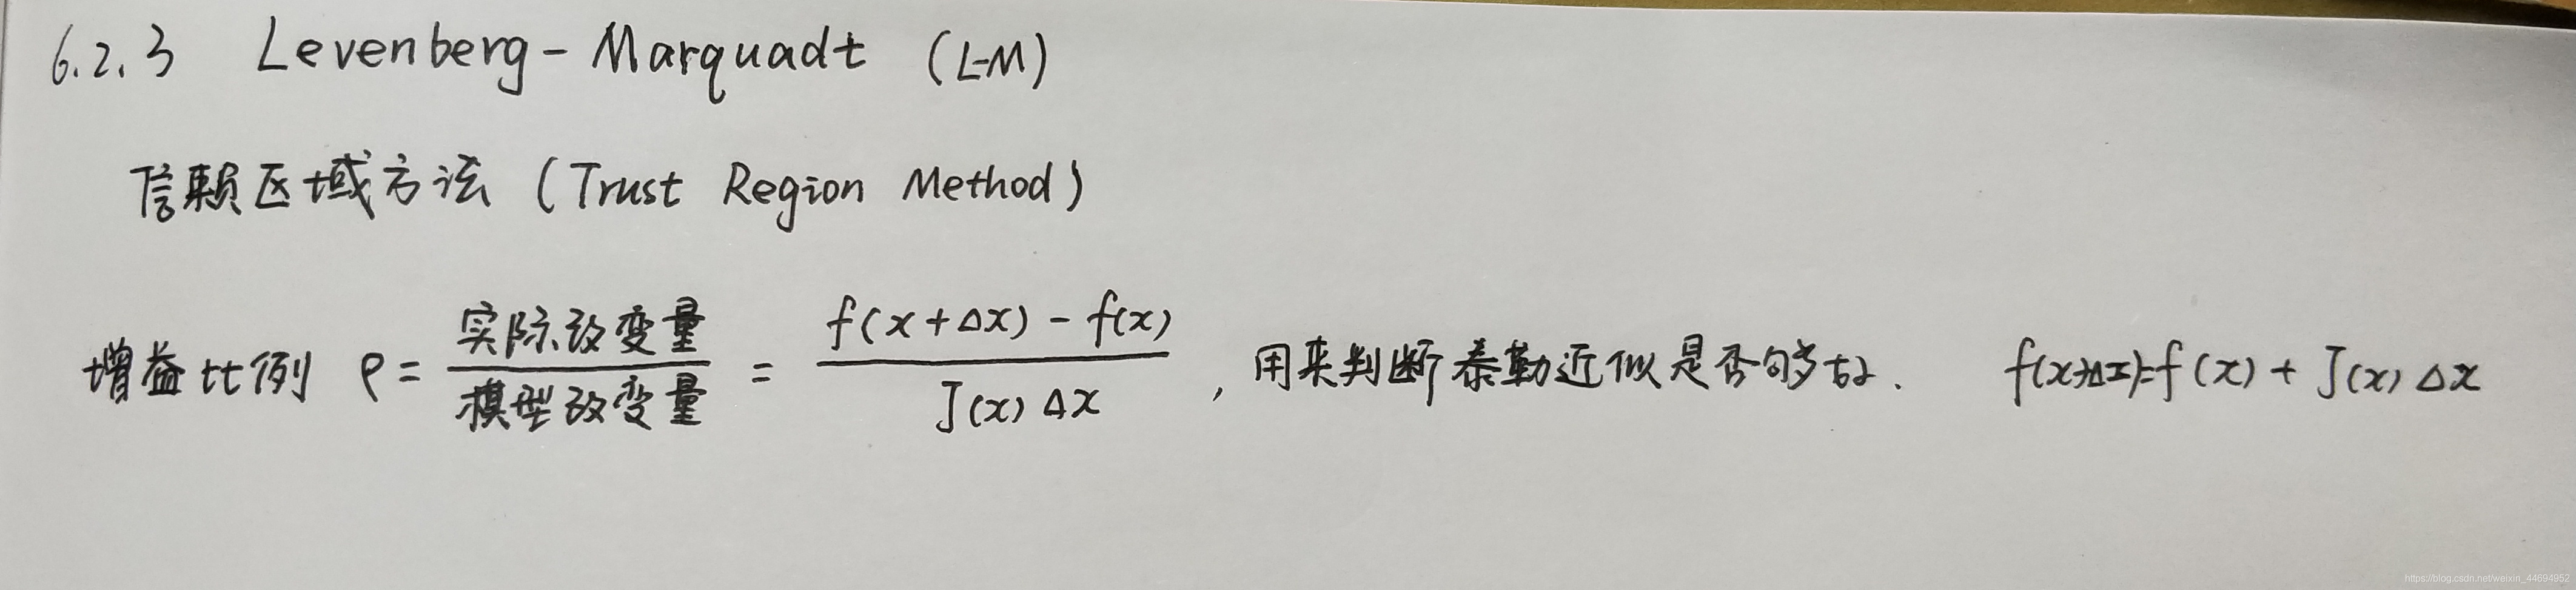 6.2.3 Levenberg-Marquadt (L-M)
信赖区域方法 (Trust Region Method)
增益比例 ρ = 实际改变量 / 模型改变量 = f(x+Δx) - f(x) / J(x)Δx , 用来判断泰勒近似是否够好. f(x+Δx)=f(x) + J(x)Δx
https://blog.csdn.net/weixin_44694952